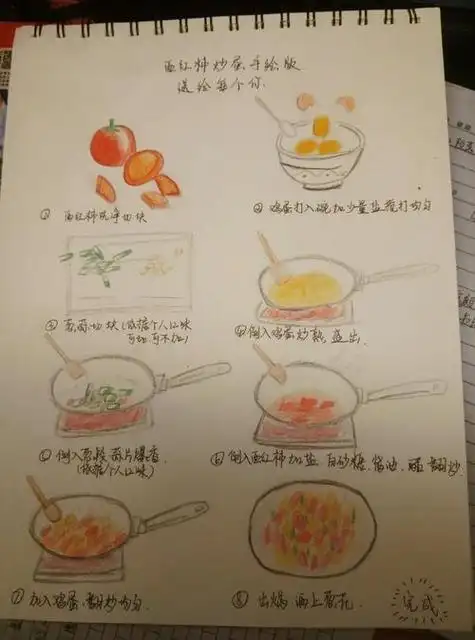 西红柿炒蛋手绘版
送给每个你
① 西红柿洗净切块
② 鸡蛋打入碗加少量盐搅打均匀
③ 葱蒜切块(依据个人口味
可加可不加)
④ 倒入鸡蛋炒熟, 盛出.
⑤ 倒入葱段蒜片爆香.
(依据个人口味)
⑥ 倒入西红柿加盐 白砂糖. 酱油. 醋 翻炒.
⑦ 加入鸡蛋.翻炒均匀.
⑧ 出锅 洒上葱花.
完成